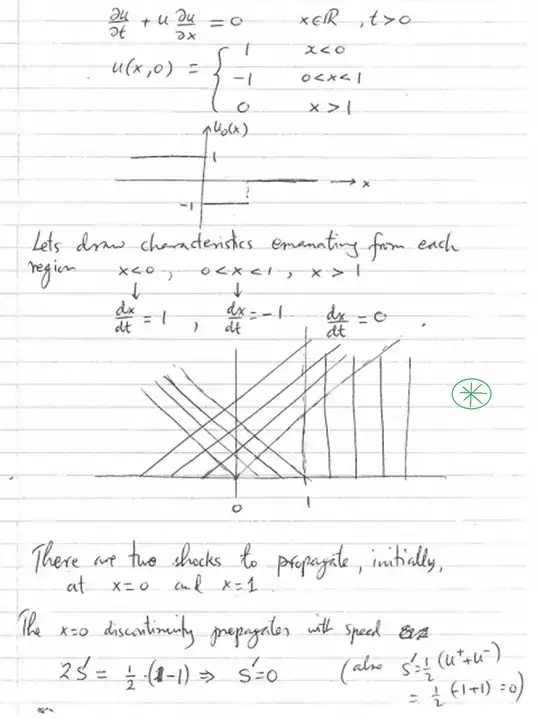 ∂u/∂t + u ∂u/∂x = 0   x∈ℝ, t>0
u(x,0) = { 1   x<0
-1   0<x<1
0   x>1
u₀(x)
1
x
-1
Lets draw characteristics emanating from each
region   x<0 ,   0<x<1 ,   x>1
↓   ↓
dx/dt = 1 ,   dx/dt = -1   dx/dt = 0 .
0   1
There are two shocks to propagate, initially,
at x=0 and x=1.
The x=0 discontinuity propagates with speed
2S' = 1/2·(1-1) ⇒ S'=0   (also S'=1/2(u⁺+u⁻)
= 1/2(-1+1)=0)